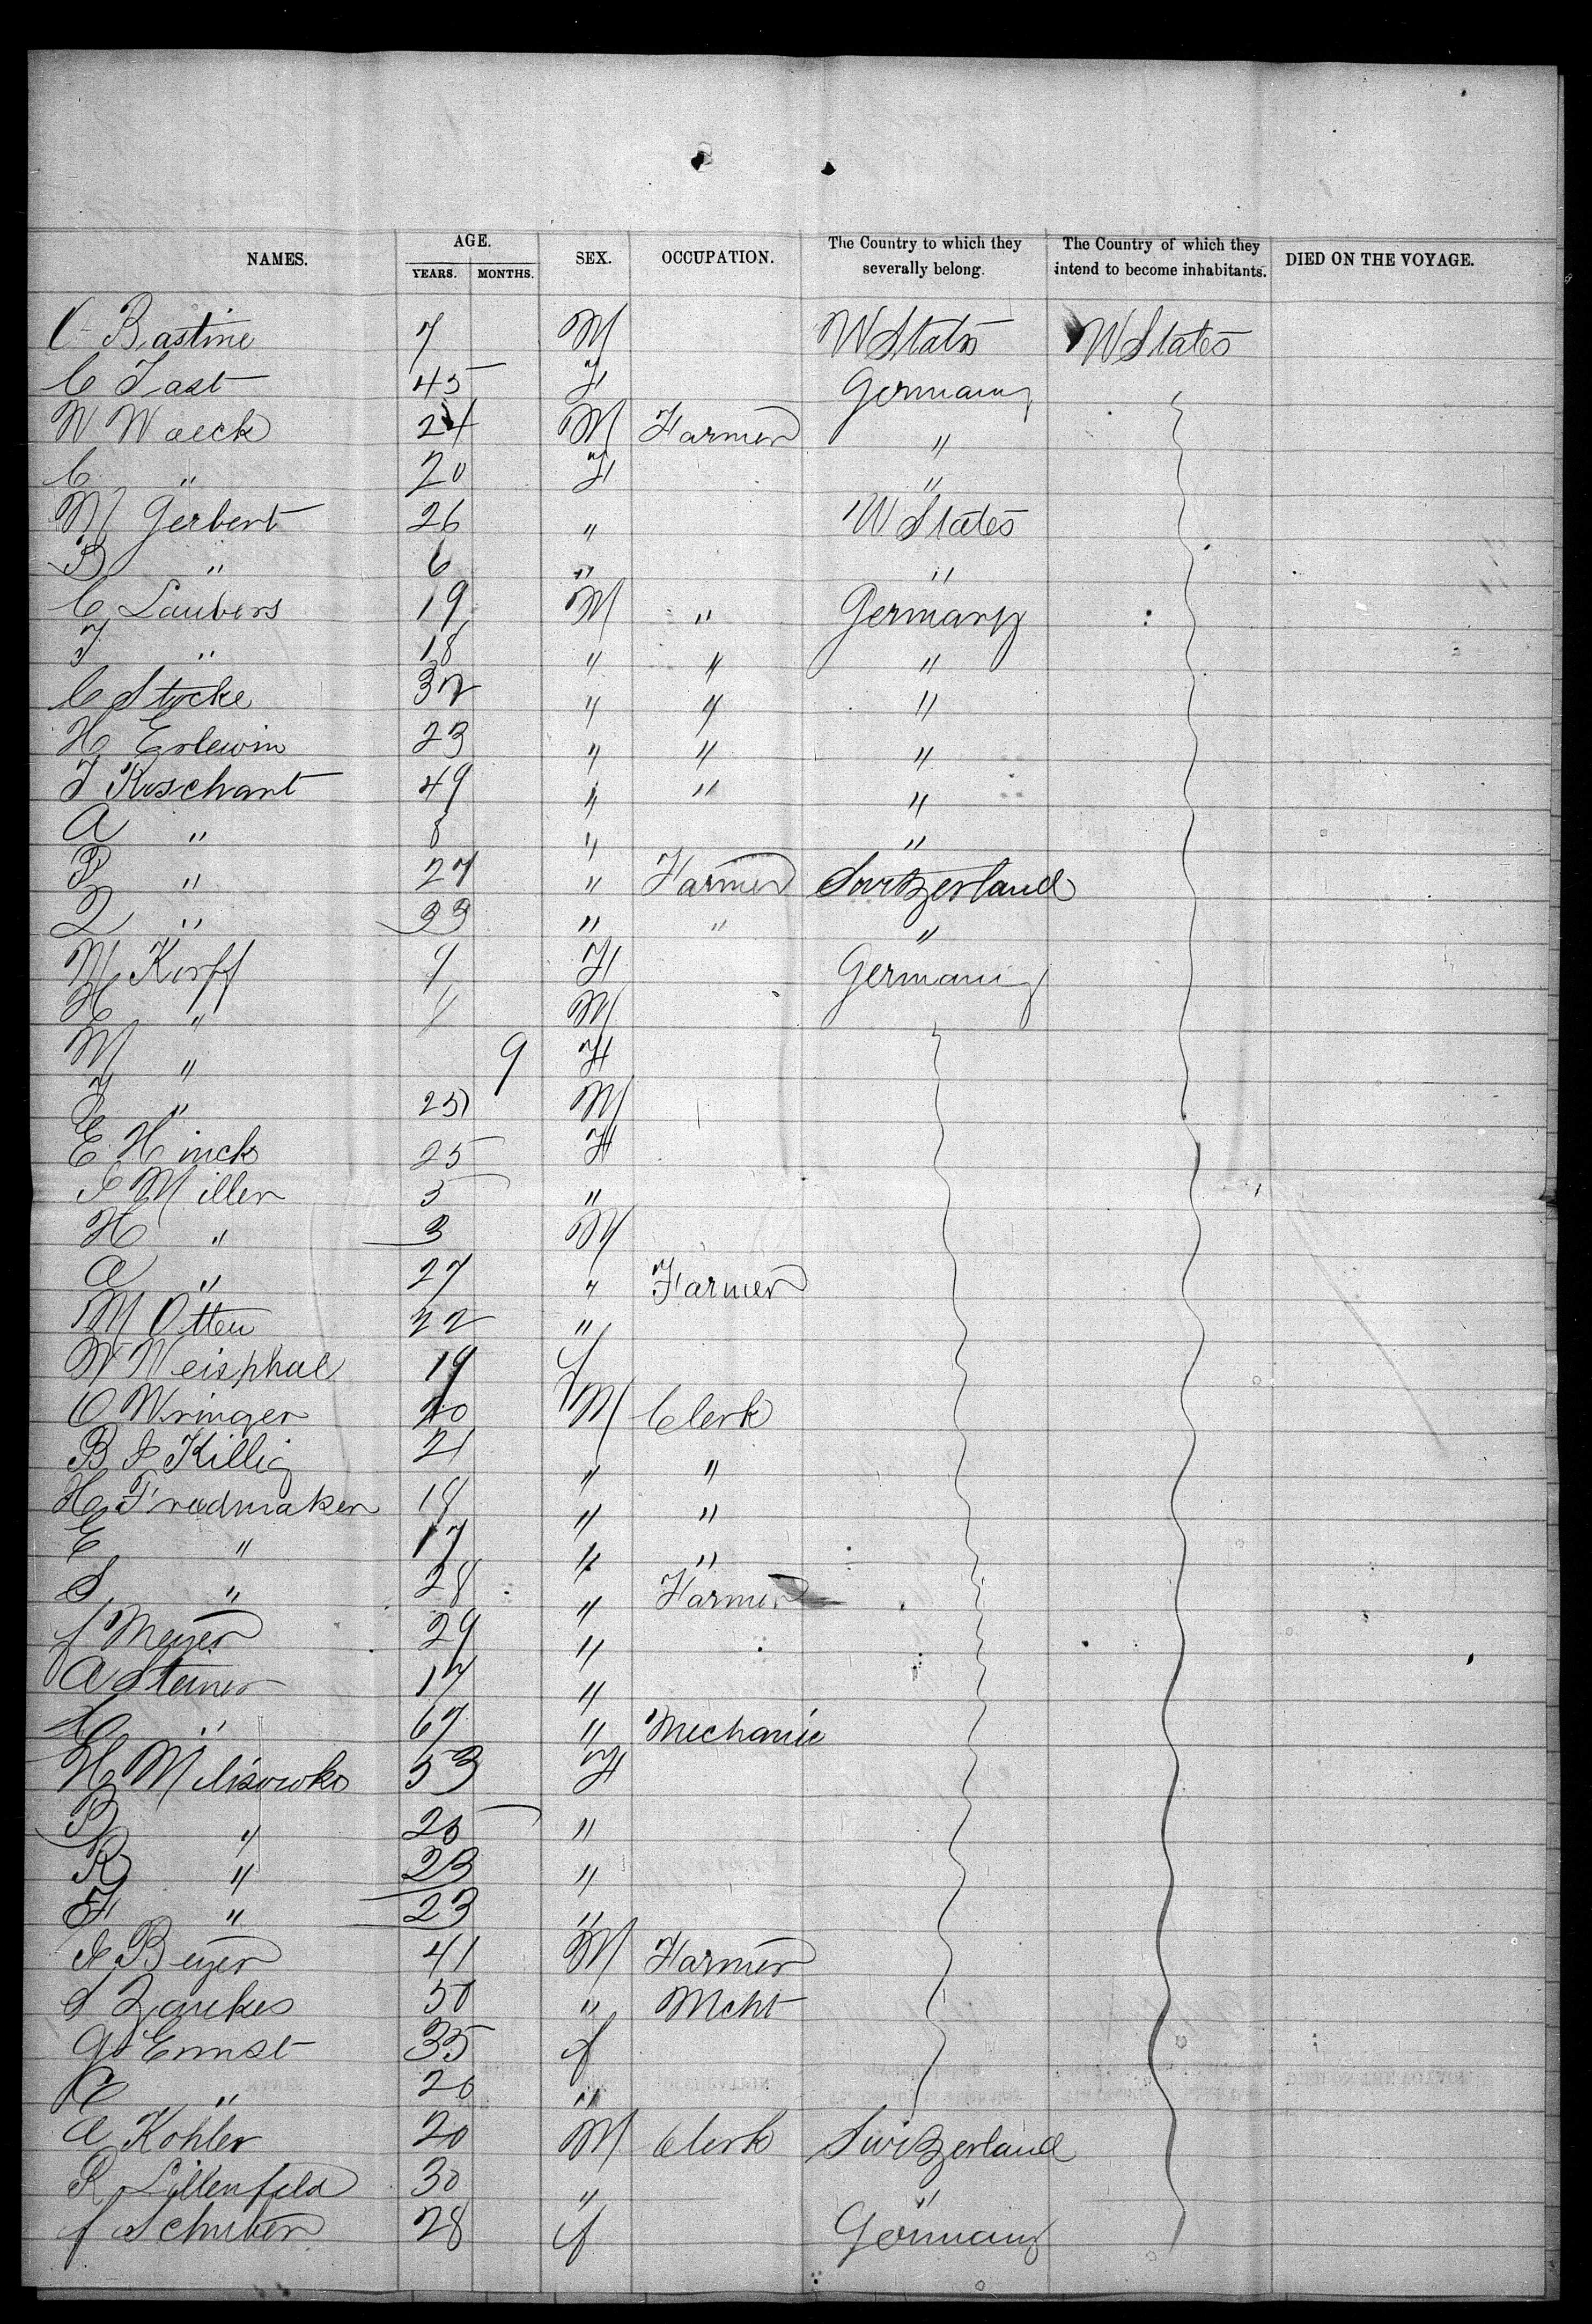 NAMES. AGE. YEARS. MONTHS. SEX. OCCUPATION. The Country to which they severally belong. The Country of which they intend to become inhabitants. DIED ON THE VOYAGE.
C Bastine 7 M W States W States
C Tast 45 F Germany
W Waeck 24 M Farmer "
C " 20 F "
M Gerbert 26 " W States
B " 6 " "
C Laubers 19 M " Germany
J " 18 " " "
C Stocke 32 " " "
H Erlewin 23 " " "
J Roschant 49 " " "
A " 8 " "
P " 27 " Farmer Switzerland
Q " 33 " " "
M Korff 9 F Germany
H " M
M " 9 F
J " 25 M
E Hinck 25 F
S Miller 5 "
H " 3 M
A " 27 " Farmer
M Otten 22 "
W Weisphal 19 f
O Wringer 20 M Clerk
B J Killig 21 " "
H Fradmaker 18 " "
E " 17 " "
S " 28 " Farmer
f Meyer 29 "
A Steiner 17 "
C " 67 " Mechanic
H Milisowko 53 F
B " 26 "
R " 23 "
F " 23 "
J Beyer 41 M Farmer
S Zarkes 50 " Mcht
G Ernst 35 f
C " 20 "
A Kohler 20 M Clerk Switzerland
R Lillenfeld 30 " "
f Schuber 28 f Germany